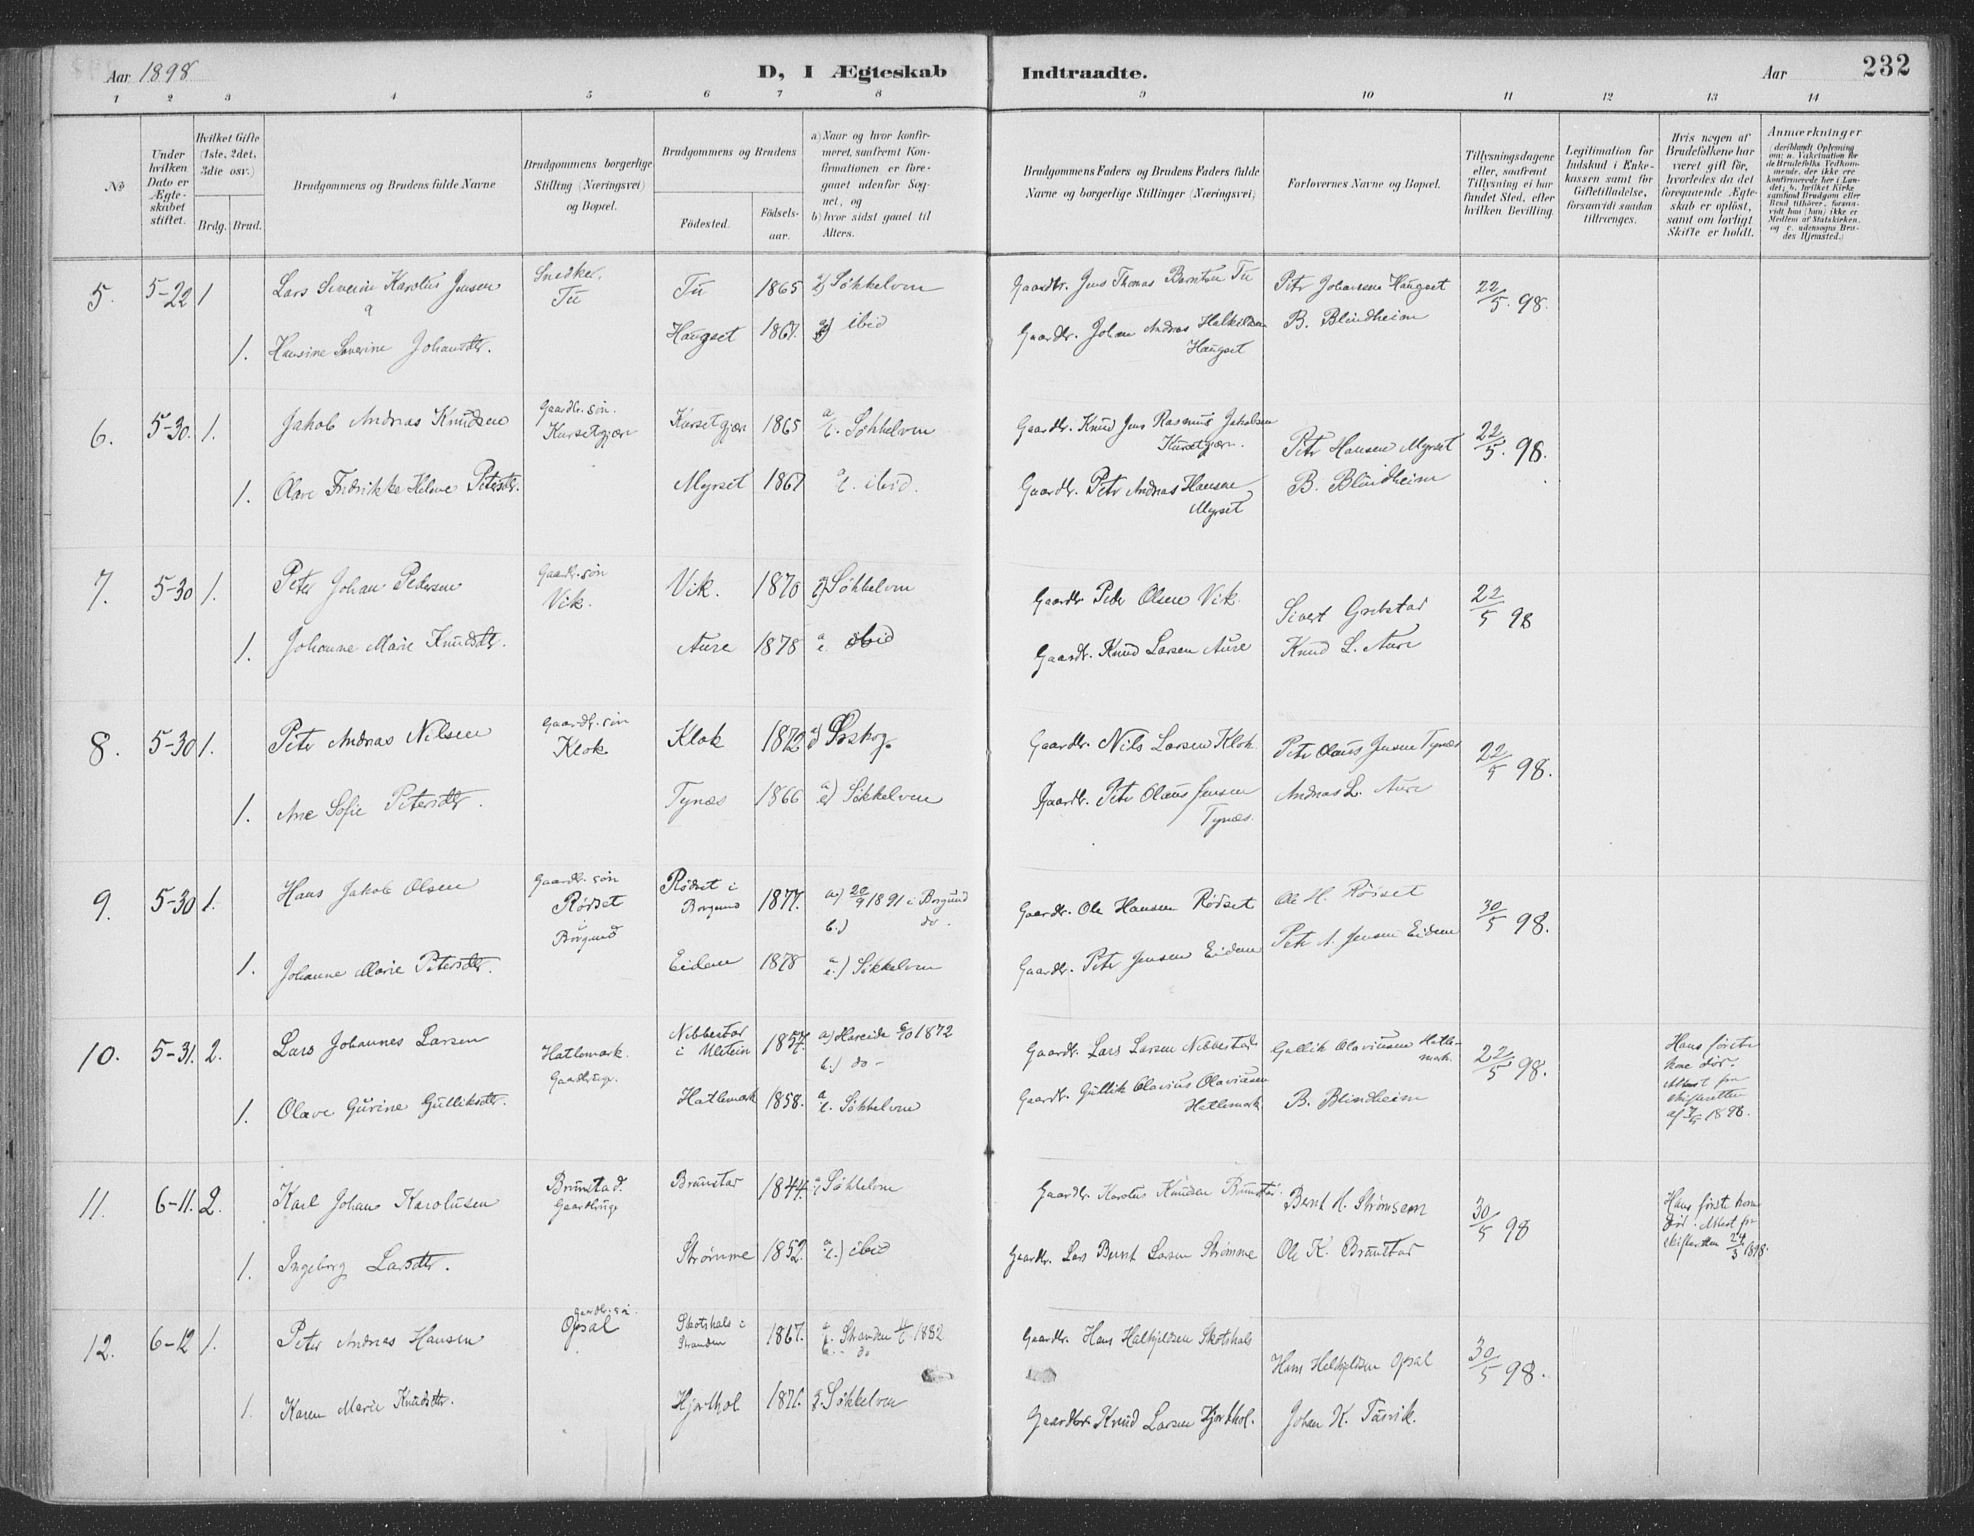 Aar 1898
D, I Ægteskab Indtraadte.
Aar
232
1 2 3 4 5 6 7 8 9 10 11 12 13 14
No
Under hvilken Dato er Ægteskabet stiftet.
Hvilket Gifte (1ste, 2det, 3die osv.)
Brdg. Brud.
Brudgommens og Brudens fulde Navne
Brudgommens borgerlige Stilling (Næringsvei) og Bopæl.
Brudgommens og Brudens
Fødested.
Fødselsaar.
a) Naar og hvor konfirmeret, saafremt Konfirmationen er foregaaet udenfor Sognet, og
b) hvor sidst gaaet til Alters.
Brudgommens Faders og Brudens Faders fulde Navne og borgerlige Stillinger (Næringsvei)
Forlovernes Navne og Bopæl.
Tillysningsdagene eller, saafremt Tillysning ei har fundet Sted, efter hvilken Bevilling.
Legitimation for Indskud i Enkekassen samt for Giftetilladelse, forsaavidt saadan tiltrænges.
Hvis nogen af Brudefolkene har været gift før, hvorledes da det foregaaende Ægteskab er opløst, samt om lovligt Skifte er holdt.
Anmærkninger (deriblandt Oplysning om: a. Vakcination for de Brudefolks Vedkommende, der ikke ere konfirmerede her i Landet; b. hvilket Kirkesamfund Brudgom eller Brud tilhører, forsaavidt han (hun) ikke er Medlem af Statskirken, og c. udensogns Brudes Hjemsted.)
5. 5-22 1 Lars Severin Karolus Jensen Snedker. Tu Tu 1865 a) Søkkelven Gaardbr. Jens Thomas Berntsen Tu Peter Johansen Haugset 22/5. 98.
1. Hansine Severine Johansdtr. Haugset 1867. ibid Gaardbr. Johan Andreas Halkildsen Haugset B. Blindheim
6. 5-30. 1. Jakob Andreas Knudsen Gaardbr. søn. Kursetgjærde Kursetgjær 1865 Søkkelven Gaardbr. Knud Jens Rasmus Jakobsen Kursetgjær. Peter Hansen Myrset 22/5. 98.
1. Olave Fredrikke Helene Petersdtr. Myrset 1867 ibid. Gaardbr. Peter Andreas Hansen Myrset B. Blindheim
7. 5-30 1. Peter Johan Pedersen Gaardbr. søn Vik. Vik. 1870 Søkkelven Gaardbr Peder Olsen Vik. Sivert Grebstad 22/5 98
1. Johanne Marie Knudsdtr. Aure 1878 ibid Gaardbr. Knud Larsen Aure Knud L. Aure
8. 5-30 1. Peter Andreas Nilsen Gaardbr. søn Klok Klok 1872 a) Ørskog. Gaardbr. Nils Larsen Klok. Peter Olaus Jensen Tynæs 22/5 98.
1. Ane Sofie Petersdtr. Tynæs 1866 Søkkelven Gaardbr. Peter Olaus Jensen Tynæs. Andreas L. Aure
9. 5-30 1. Hans Jakob Olsen Gaardbr. søn Rødset Borgund Rødset i Borgund 1877. a.) 20/9 1891 i Borgund b.) do. Gaardbr. Ole Hansen Rødset Ole H. Rødset 30/5 98.
1. Johanne Marie Petersdtr. Eidem 1878 Søkkelven Gaardbr. Peter Jensen Eidem Peter A. Jensen Eidem
10. 5-31. 2. Lars Johannes Larsen Hatlemark. Gaardbruger. Nebbestad i Ulstein 1857. a) Hareide 6/10 1872 b.) do - Gaardbr. Lars Larsen Nebbestad Gullik Olaviusen Hatlemark. 22/5 98. Hans første kone død. Attest fra skifteretten af 7/5 1898.
1. Olave Gurine Gulliksdtr. Hatlemark 1858. Søkkelven Gaardbr. Gullik Olavius Olaviusen Hatlemark B. Blindheim
11. 6-11. 2. Karl Johan Karolusen Brunstad. Gaardbruger Brunstad 1844. Søkkelven Gaardbr. Karolus Knudsen Brunstad. Bernt H. Strømsem 30/5 98 Hans første kone død. Attest fra skifteretten 24/5 1898.
1. Ingeborg Larsdtr. Strømme 1852. ibid Gaardbr. Lars Bernt Larsen Strømme Ole K. Brunstad
12. 6-12 1. Peter Andreas Hansen Gaardbr. søn Opsal Skotshals i Stranden 1867. Stranden 1882 do Gaardbr. Hans Halkjeldsen Skotshals Hans Helkjeldsen Opsal 30/5 98.
1. Karen Marie Knudsdtr. Hjorthol 1871. Søkkelven Gaardbr. Knud Larsen Hjorthol. Johan K. Tusvik.